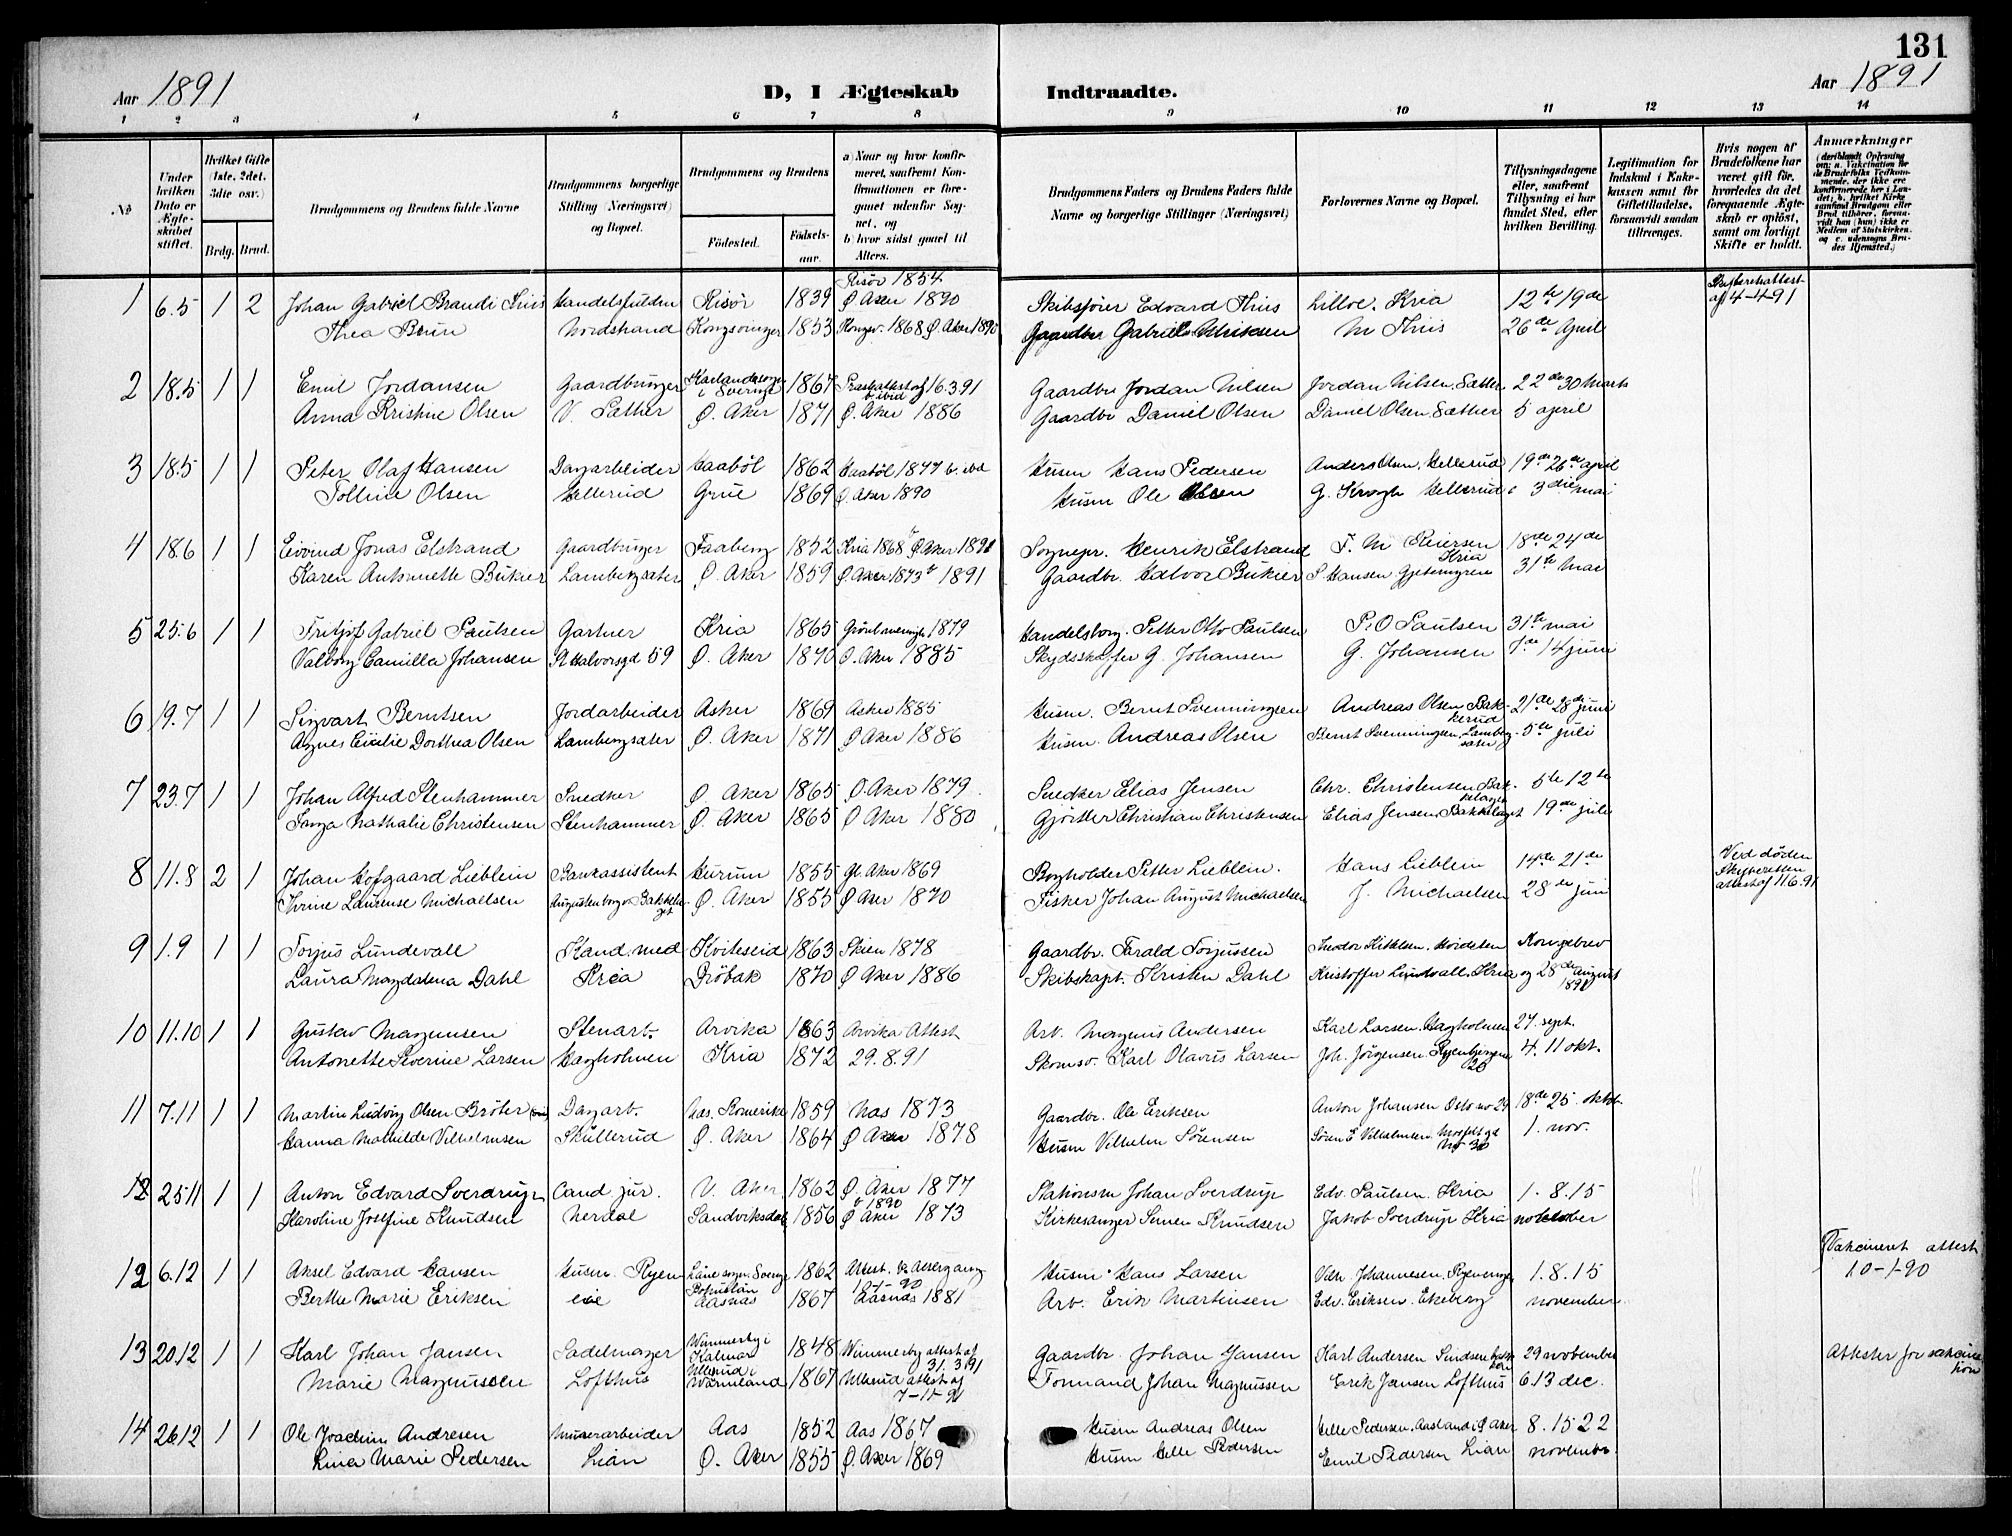 131
Aar 1891
D, I Ægteskab
Indtraadte.
Aar 1891
1 2 3 4 5 6 7 8 9 10 11 12 13 14
No
Under hvilken Dato er Ægteskabet stiftet.
Hvilket Gifte (1ste, 2det, 3die osv.)
Brdg. Brud.
Brudgommens og Brudens fulde Navne
Brudgommens borgerlige Stilling (Næringsvei) og Bopæl.
Brudgommens og Brudens
Fødested.
Fødselsaar.
a) Naar og hvor konfirmeret, saafremt Konfirmationen er foregaaet udenfor Sognet, og
b) hvor sidst gaaet til Alters.
Brudgommens Faders og Brudens Faders fulde Navne og borgerlige Stillinger (Næringsvei)
Forlovernes Navne og Bopæl.
Tillysningsdagene eller, saafremt Tillysning ei har fundet Sted, efter hvilken Bevilling.
Legitimation for Indskud i Enkekassen samt for Giftetilladelse, forsaavidt saadan tiltrænges.
Hvis nogen af Brudefolkene har været gift før, hvorledes da det foregaaende Ægteskab er opløst, samt om lovligt Skifte er holdt.
Anmærkninger
(deriblandt Oplysning om: a. Vakcination for de Brudefolks Vedkommende, der ikke ere konfirmerede her i Landet; b. hvilket Kirkesamfund Brudgom eller Brud tilhører, forsaavidt han (hun) ikke er Medlem af Statskirken, og c. udensogns Brudes Hjemsted.)
1 6.5 1 2 Johan Gabriel Brandi Thiis Handelsfuldm Risør 1839 Risör 1854 Ø Aker 1890 Skibsfører Edvard Thiis Lilloe, Kria 12te 19de Skifteretsattest af 4-4-91
Thea Bruun Nordstrand Kongsvinger 1853 Kongsv. 1868 Ø. Aker 1890 Gaardbr Gabriel M Thiis 26de April
2 18.5 1 1 Emil Jordansen Gaardbruger i Sverige 1867 16.3.91 Gaardbr Jordan Nilsen Jordan Nilsen, Sætter 22de 30 marts
Anna Kristine Olsen Ø. Aker 1871 Ø. Aker 1886 Gaardbr Daniel Olsen Daniel Olsen, Sæther 5 april
3 18.5 1 1 Peter Olaf Hansen Dagarbeider Haaböl 1862 Haaböl 1877 b. ibid Husm Hans Pedersen Anders Olsen, Hellerud 19de 26de april
Tolline Olsen Hellerud Grue 1869 Ø. Aker 1890 Husm Ole Olsen G. Krogh Hellerud 3die mai
4 18.6 1 1 Eivind Jonas Elstrand Gaardbruger Faaberg 1852 Kria 1868 Ø. Aker 1891 Sognepr. Henrik Elstrand F. M Reiersen Kria 18de 24de
Karen Antonette Bükier Lambergsæter Ø. Aker 1859 Ø. Aker 1873 1891 Gaardbr. Halvor Bükier S Hansen Gjetemyren 31te Mai
5 25.6 1 1 Fritjof Gabriel Paulsen Gartner Kria 1865 1879 Handelsborg. Petter Otto Paulsen P. O Paulsen 31te mai
Valborg Camilla Johansen St Halvorsgd 59 Ø. Aker 1870 Ø. Aker 1885 Skydsskaffer G. Johansen G. Johansen 7de 14 juni
6 19.7 1 1 Sigvart Berntsen Jordarbeider Asker 1869 Asker 1885 Husm. Bernt Svenningsen Andreas Olsen Bakkerud 21de 28de juni
Agnes Cicilie Dorthea Olsen Lambergsæter Ø. Aker 1871 Ø Aker 1886 Husm. Andreas Olsen Bernt Svenningsen, Lambergsæter 5te juli
7 23.7 1 1 Johan Alfred Stenhammer Snedker Ø Aker 1865 Ø. Aker 1879 Snedker Elias Jensen Chr. Christensen Bækkelaget 5te 12te
Nathalie Christensen Stenhammer Ø. Aker 1865 Ø Aker 1880 Gjörtler Christian Christensen Elias Jensen, Bækkelaget 19de juli
8 11.8 2 1 Johan Hofgaard Lieblein Bankassistent Hurum 1855 Gl. Aker 1869 Bogholder Petter Lieblein. Hans Lieblein 14de 21de Ved döden Skifteretten attest af 11.6.91
Trine Laurense Michaelsen Augustenborg Bækkelaget Ø. Aker 1855 Ø Aker 1870 Fisker Johan August Michaelsen J. Michaelsen 28de juni
9 1.9 1 1 Torjus Lundevall Kand. med Kviteseid 1863 Skien 1878 Gaardbr. Tarald Torjussen Teodor Kittelsen, Hvidsten Kongebrev
Laura Magdalena Dahl Kria Dröbak 1870 Ø Aker 1886 Skibskapt. Kristen Dahl Kristoffer Lundvall Kria og 28de August 1891
10 11.10 1 1 Gustav Magnusen Stenarb. Arvika 1863 Arvika Attest Arb. Magnus Andersen Karl Larsen, Hagholmen 27. sept.
Antonette Severine Larsen Hagholmen Kria 1872 29.8.91 Skomv. Karl Olavus Larsen Joh. Jörgensen 26 4. 11 okt.
11 7.11 1 1 Martin Ludvig Olsen Bröter Dagarb. Næs. Romerike 1859 Næs 1873 Gaardbr. Ole Eriksen Anton Johansen Oslo no 24 18de 25. oktbr.
Hanna Mathilde Vilhelmsen Skullerud Ø. Aker 1864 Ø Aker 1878 Husm Vilhelm Sörensen Sören E Vilhelmsen No 30 1. nov.
12 25.11 1 1 Anton Edvard Sverdrup Cand. jur. V. Aker 1862 Ø. Aker 1877 1890 Stationsm Johan Sverdrup Edv. Paulsen. Kria 1. 8. 15
Karoline Josefine Knudsen Nerdal Sandviksdal 1856 Ø Aker 1873 Kirkesanger Simen Knudsen Jakob Sverdrup Kria
12 6.12 1 1 Aksel Edvard Hansen Husm. Ryen Sverige 1862 Attest. 10-1-90 Husm. Hans Larsen Vilh Johannesen, 1. 8. 15 Vakcineret attest 10-1-90
Berthe Marie Eriksen eie Aasnæs 1867 Aasnæs 1881 Arb. Erik Martinsen Edv. Eriksen. Ekeberg november
13 20.12 1 1 Karl Johan Jansen Sadelmager Wimmerby i Kalmar 1848 Wimmerby attest af 31.3.91 Gaardbr. Johan Jansen Karl Andersen 29 november Attester for vakcination
Marie Magnussen Lofthus Ullerud i Wärmland 1867 Ullerud attest af 7-11-91 Tonnand Johan Magnussen Erik Jansen Lofthus 6. 13 dec.
14 26.12 1 1 Ole Joachim Andresen Murerarbeider Aas 1852 Aas 1867 Husm Andreas Olsen Helle Pedersen, Ø Aker 8. 15 22
Lina Marie Pedersen Lian Ø. Aker 1855 Ø. Aker 1869 Husm Helle Pedersen Emil Pedersen Lian novembr.